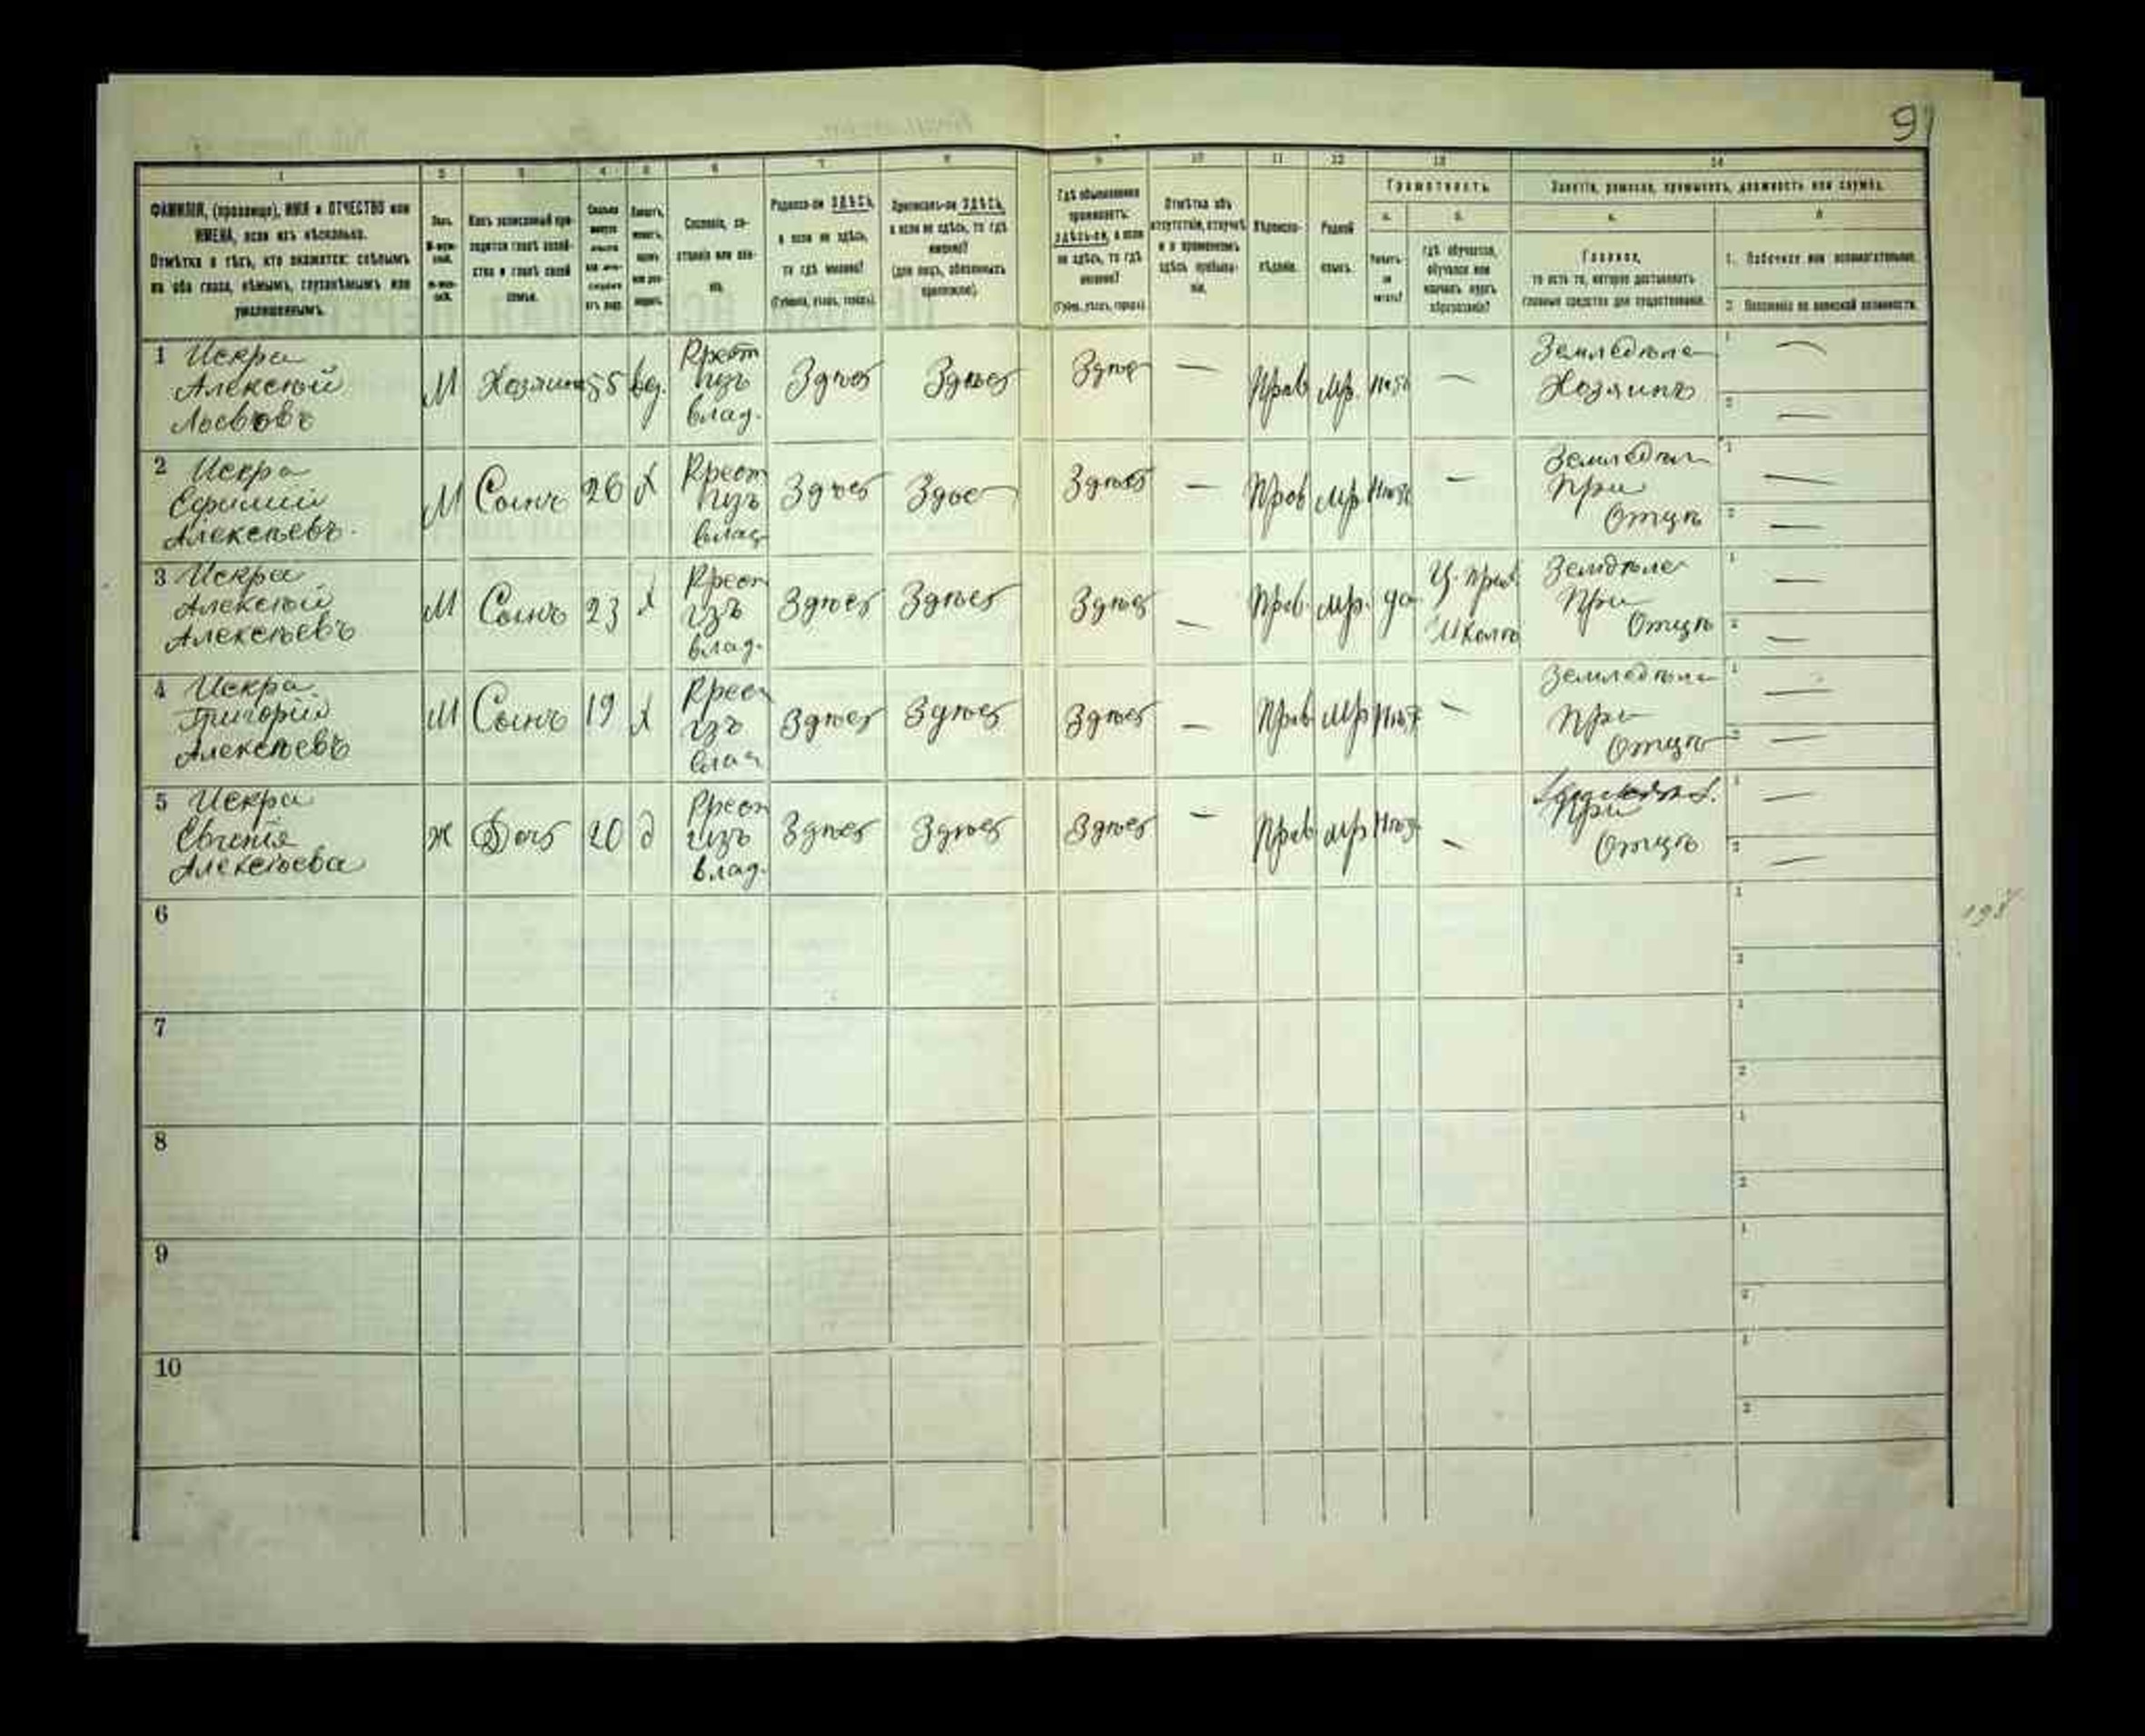 9
1 2 3 4 5 6 7 8 9 10 11 12 13 14
ФАМИЛІЯ, (прозвище), ИМЯ и ОТЧЕСТВО или
ИМЕНА, если ихъ нѣсколько.
Отмѣтка о тѣхъ, кто окажется: слѣпымъ
на оба глаза, нѣмымъ, глухонѣмымъ или
умалишеннымъ.
Полъ.
Какъ записанный при-
ходится главѣ хозяй-
ства и главѣ своей
семьи.
Сословіе, со-
стояніе или зва-
ніе.
Родился-ли ЗДѢСЬ,
а если не здѣсь,
то гдѣ именно?
(Губернія, уѣздъ, городъ).
Приписанъ-ли ЗДѢСЬ,
а если не здѣсь, то гдѣ
именно?
(для лицъ, обязанныхъ
припискою).
Гдѣ обыкновенно
проживаетъ:
ЗДѢСЬ-ЛИ, а если
не здѣсь, то гдѣ
именно?
(Губер., уѣздъ, городъ).
Отмѣтка объ
отсутствіи, отлучкѣ
и о временномъ
здѣсь пребыва-
ніи.
Вѣроиспо-
вѣданіе.
Родной
языкъ.
Грамотность.
а.
Умѣетъ-
ли
читать?
б.
гдѣ обучается,
обучался или
кончилъ курсъ
образованія?
Занятіе, ремесло, промыселъ, должность или служба.
а.
Главное,
то есть то, которое доставляетъ
главныя средства для существованія.
б
1. Побочное или вспомогательное.
2. Положеніе по воинской повинности.
1 Искра
Алексѣй
Львовъ
М Хозяинъ 55 вд.
Крест
изъ
влад.
Здѣсь Здѣсь Здѣсь — Прав Мр. Нѣтъ —
Земледѣле
Хозяинъ
2 Искра
Ефимій
Алексѣевъ.
М Сынъ 26 х
Крест
изъ
влад
Здѣсь Здѣсь Здѣсь — Прав Мр Нѣтъ —
Земледѣл
При
Отцѣ
3 Искра
Алексѣй
Алексѣевъ
М Сынъ 23 х
Крест
изъ
влад.
Здѣсь Здѣсь Здѣсь — Прав. Мр. да
Ц. прих.
Школѣ
Земдѣле
При
Отцѣ
4 Искра
Григорій
Алексѣевъ
М Сынъ 19 х
Крест
изъ
влад
Здѣсь Здѣсь Здѣсь — Прав Мр Нѣтъ —
Земледѣле
При
Отцѣ
5 Искра
Евгенія
Алексѣева
Ж Дочь 20 д
Крест
изъ
влад.
Здѣсь Здѣсь Здѣсь — Прав Мр Нѣтъ —
При
Отцѣ
6
7
8
9
10